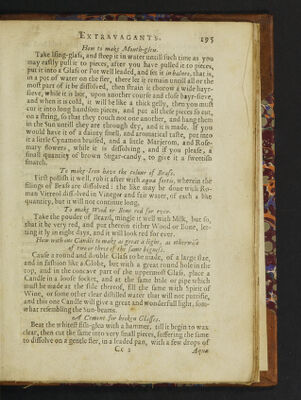 EXTRAVAGANTS. 195
How to make Mouth-glew.
Take Ising-glass, and steep it in water untill such time as you
may easily pull it to pieces, after you have pulled it to pieces,
put it into a Glass or Pot well leaded, and set it in balneo, that is,
in a pot of water on the fier, there let it remain untill all or the
most part of it be dissolved, then strain it thorow a wide hayr-
sieve, while it is hot, upon another course and close hayr-sieve,
and when it is cold, it will be like a thick gelly, then you must
cut it into long handsom pieces, and put all those pieces so cut,
on a string, so that they touch not one another, and hang them
in the Sun untill they are through dry, and it is made. If you
would have it of a dainty smell, and aromatical taste, put into
it a little Cynamon bruised, and a little Marjerom, and Rose-
mary flowers, while it is dissolving, and if you please, a
small quantity of brown Sugar-candy, to give it a sweetish
smatch.
To make Iron have the colour of Brass.
First pollish it well, rub it after with aqua fortis, wherein the
filings of Brass are dissolved: the like may be done with Ro-
man Vitreol dissolved in Vineger and fair water, of each a like
quantity, but it will not continue long.
To make Wood or Bone red for ever.
Take the pouder of Brazil, mingle it well with Milk, but so,
that it be very red, and put therein either Wood or Bone, let-
ting it ly in eight days, and it will look red for ever.
How with one Candle to make as great a light, as otherwise
of two or three of the same bigness.
Cause a round and double Glass to be made, of a large size,
and in fashion like a Globe, but with a great round hole in the
top, and in the concave part of the uppermost Glass, place a
Candle in a loose socket, and at the same hole or pipe which
must be made at the side thereof, fill the same with Spirit of
Wine, or some other clear distilled water that will not putrifie,
and this one Candle will give a great and wonderfull light, som-
what resembling the Sun-beams.
A Cement for broken Glasses.
Beat the whitest fish-glew with a hammer, till it begin to wax
clear, then cut the same into very small pieces, suffering the same
to dissolve on a gentle fier, in a leaded pan, with a few drops of
Cc 2 Aqua